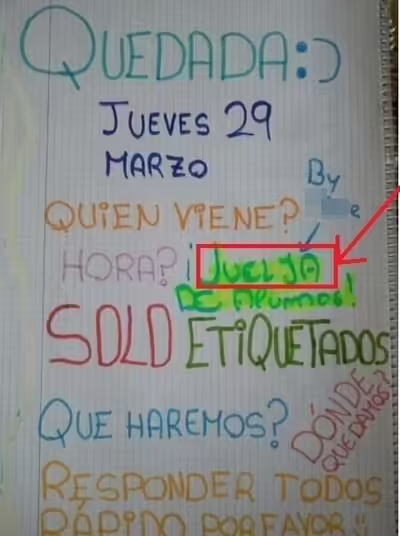 QUEDADA:)
JUEVES 29
MARZO
By
QUIEN VIENE?
HORA? ¡JUELJA
DE ALUMNOS!
SOLO ETIQUETADOS
QUE HAREMOS?
DÓNDE
QUEDAMOS?
RESPONDER TODOS
RÁPIDO POR FAVOR